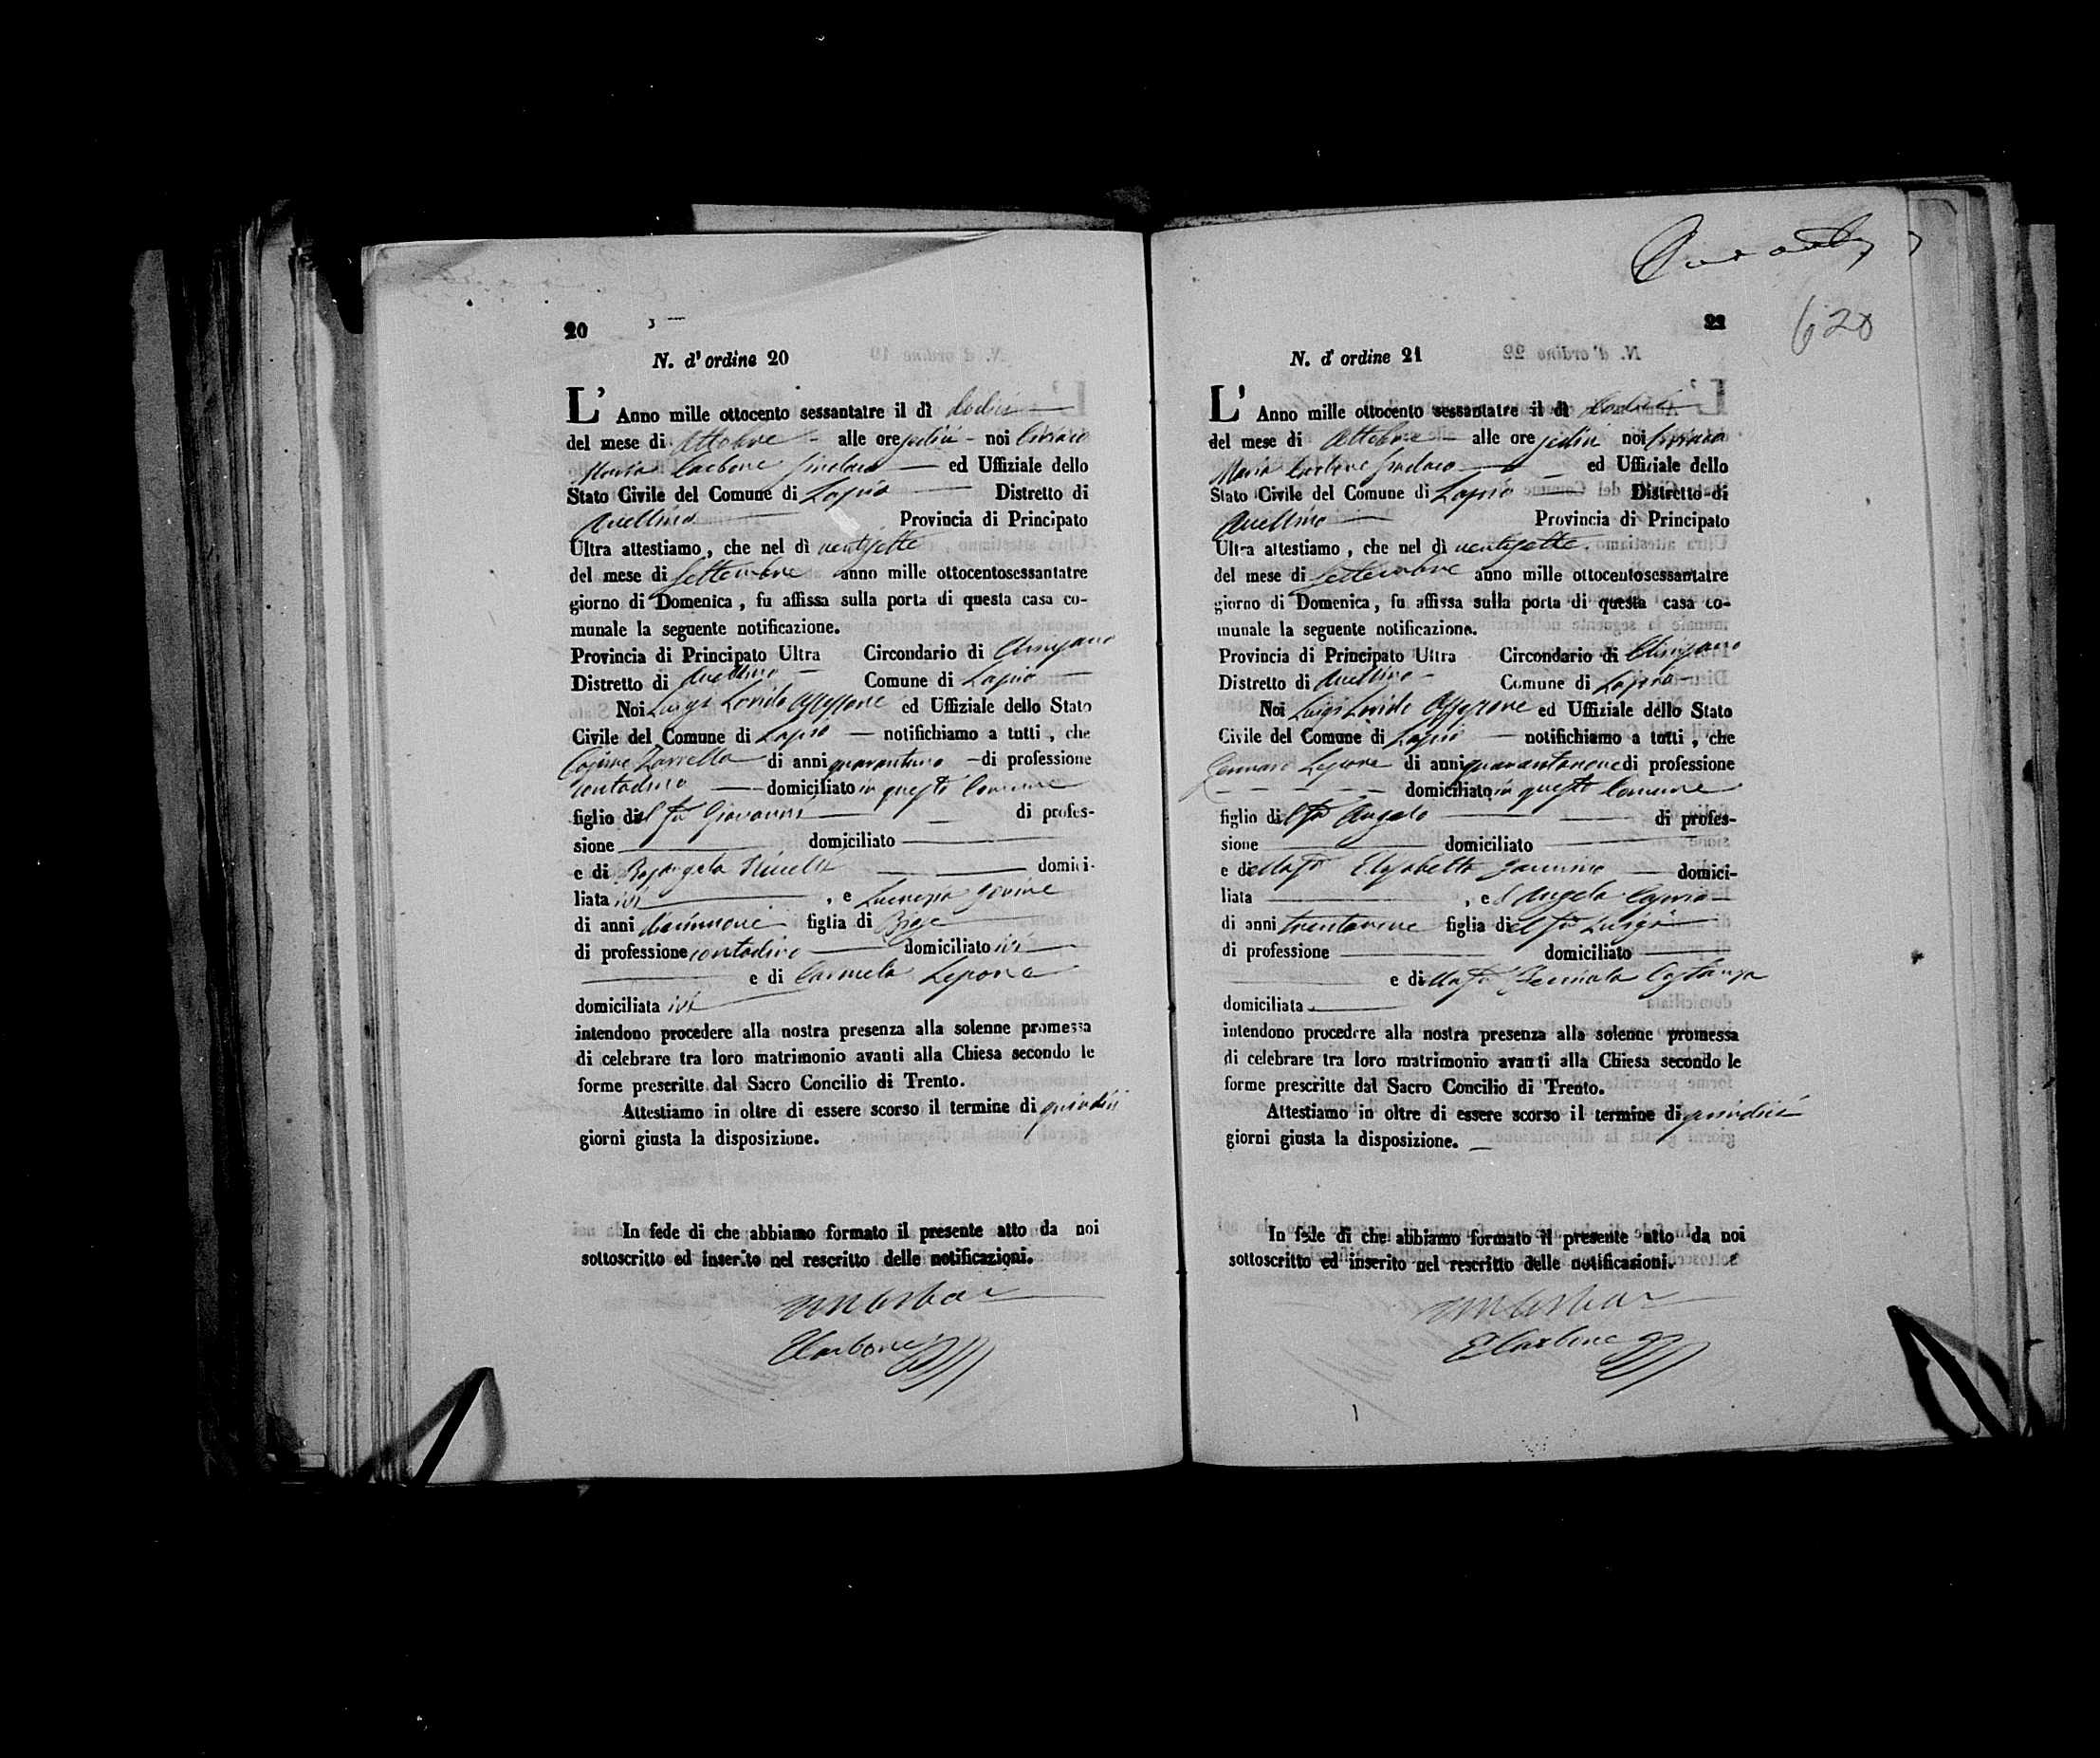 20
N. d' ordine 20
L' Anno mille ottocento sessantatre il dì dodici
del mese di Ottobre alle ore sedici noi Ciriaco
Maria Carbone Sindaco ed Uffiziale dello
Stato Civile del Comune di Lapio Distretto di
Avellino Provincia di Principato
Ultra attestiamo, che nel dì ventisette
del mese di Settembre anno mille ottocentosessantatre
giorno di Domenica, fu affissa sulla porta di questa casa co-
munale la seguente notificazione.
Provincia di Principato Ultra Circondario di Chiusano
Distretto di Avellino Comune di Lapio
Noi Luigi Assessore ed Uffiziale dello Stato
Civile del Comune di Lapio notifichiamo a tutti, che
Zarrella di anni quarantuno di professione
contadino domiciliato in questo Comune
figlio del fu Giovanni di profes-
sione domiciliato
e di Rosangela domici-
liata ivi , e Lucrezia
di anni diciannove figlia di Biase
di professione contadino domiciliato ivi
e di Carmela Lepore
domiciliata ivi
intendono procedere alla nostra presenza alla solenne promessa
di celebrare tra loro matrimonio avanti alla Chiesa secondo le
forme prescritte dal Sacro Concilio di Trento.
Attestiamo in oltre di essere scorso il termine di quindici
giorni giusta la disposizione.
In fede di che abbiamo formato il presente atto da noi
sottoscritto ed inserito nel rescritto delle notificazioni.
Carbone
620
N. d' ordine 21
L' Anno mille ottocento sessantatre il dì dodici
del mese di Ottobre alle ore sedici noi Ciriaco
Maria Carbone Sindaco ed Uffiziale dello
Stato Civile del Comune di Lapio Distretto di
Avellino Provincia di Principato
Ultra attestiamo, che nel dì ventisette
del mese di Settembre anno mille ottocentosessantatre
giorno di Domenica, fu affissa sulla porta di questa casa co-
munale la seguente notificazione.
Provincia di Principato Ultra Circondario di Chiusano
Distretto di Avellino Comune di Lapio
Noi Luigi Assessore ed Uffiziale dello Stato
Civile del Comune di Lapio notifichiamo a tutti, che
Gennaro Lepore di anni quarantanove di professione
domiciliato in questo Comune
figlio del fu Angelo di profes-
sione domiciliato
e della fu Elisabetta domici-
liata , e d' Angela
di anni trentanove figlia del fu Luigi
di professione domiciliato
e della fu Costanza
domiciliata
intendono procedere alla nostra presenza alla solenne promessa
di celebrare tra loro matrimonio avanti alla Chiesa secondo le
forme prescritte dal Sacro Concilio di Trento.
Attestiamo in oltre di essere scorso il termine di quindici
giorni giusta la disposizione.
In fede di che abbiamo formato il presente atto da noi
sottoscritto ed inserito nel rescritto delle notificazioni.
Carbone